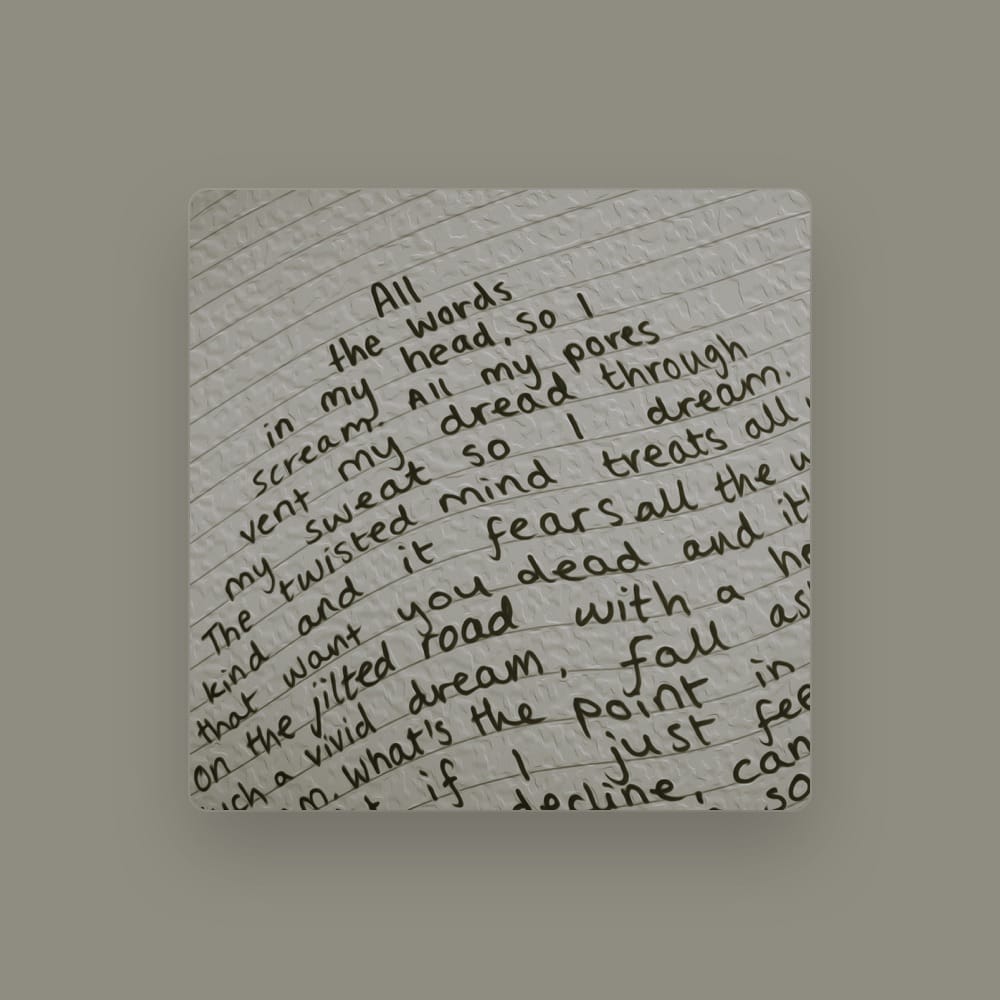 All
the words
in my head, so I
scream. All my pores
vent my dread through
my sweat so I dream.
The twisted mind treats all
kind and it fears all the
that want you dead and
on the jilted road with a
a vivid dream, fall
What's the point in
if I just
decline,
so